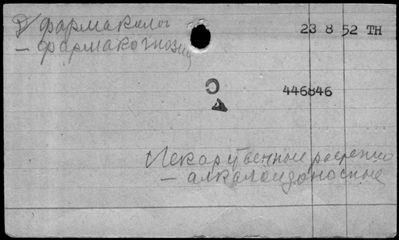 фармаколог
— фармакогнозия
23 8 52 TH
446846
Лекарственные растения
— алкалоидоносные